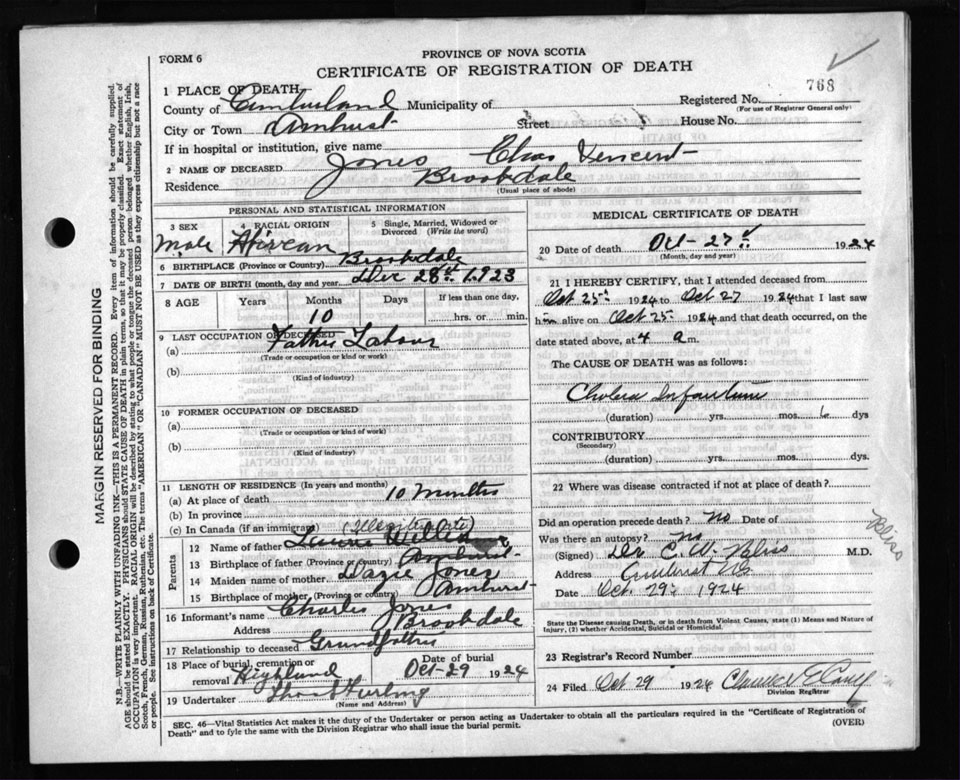 PROVINCE OF NOVA SCOTIA
FORM 6
CERTIFICATE OF REGISTRATION OF DEATH
768
1 PLACE OF DEATH
County of Cumberland Municipality of
Registered No.
(For use of Registrar General only)
City or Town Amherst Street House No.
If in hospital or institution, give name
2 NAME OF DECEASED Jones Chas Vincent
Residence Brookdale
(Usual place of abode)
PERSONAL AND STATISTICAL INFORMATION
3 SEX 4 RACIAL ORIGIN 5 Single, Married, Widowed or Divorced (Write the word)
Male African
6 BIRTHPLACE (Province or Country) Brookdale
7 DATE OF BIRTH (month, day and year) Dec 28th 1923
8 AGE Years Months Days If less than one day,
10 hrs. or min.
9 LAST OCCUPATION OF DECEASED
(a) Father Labour
(Trade or occupation or kind or work)
(b)
(Kind of industry)
10 FORMER OCCUPATION OF DECEASED
(a)
(Trade or occupation or kind or work)
(b)
(Kind of industry)
11 LENGTH OF RESIDENCE (In years and months)
(a) At place of death 10 Months
(b) In province
(c) In Canada (if an immigrant) (Illegitimate)
Parents
12 Name of father
13 Birthplace of father (Province or country) Amherst
14 Maiden name of mother Dazie Jones
15 Birthplace of mother (Province or country) Amherst
16 Informant's name Charles Jones
Address Brookdale
17 Relationship to deceased Grandfather
18 Place of burial, cremation or removal Highland
Date of burial Oct-29 1924
19 Undertaker
(Name and Address)
MEDICAL CERTIFICATE OF DEATH
20 Date of death Oct-27th 1924
(Month, day and year)
21 I HEREBY CERTIFY, that I attended deceased from
Oct 25th 1924 to Oct 27 1924 that I last saw
him alive on Oct 25th 1924 and that death occurred, on the
date stated above, at 4 a m.
The CAUSE OF DEATH was as follows:
Cholera Infantum
(duration) yrs. mos. 6 dys
CONTRIBUTORY
(Secondary)
(duration) yrs. mos. dys.
22 Where was disease contracted if not at place of death?
Did an operation precede death? No Date of
Was there an autopsy? No
(Signed) Dr C. W. Bliss M.D.
Bliss
Address Amherst NS
Date Oct. 29th 1924
State the Disease causing Death, or in death from Violent Causes, state (1) Means and Nature of
Injury, (2) whether Accidental, Suicidal or Homicidal.
23 Registrar's Record Number
24 Filed Oct 29 1924
Division Registrar
SEC. 46—Vital Statistics Act makes it the duty of the Undertaker or person acting as Undertaker to obtain all the particulars required in the "Certificate of Registration of
Death" and to fyle the same with the Division Registrar who shall issue the burial permit.
(OVER)
MARGIN RESERVED FOR BINDING
N.B.—WRITE PLAINLY WITH UNFADING INK—THIS IS A PERMANENT RECORD. Every item of information should be carefully supplied.
AGE should be stated EXACTLY. PHYSICIANS should STATE CAUSE OF DEATH in plain terms, so that it may be properly classified. Exact statement of
OCCUPATION is very important. RACIAL ORIGIN will be described by stating to what people or tongue the deceased person belonged whether English, Irish,
Scotch, French, German, Russian, Ruthenian, etc. The terms "AMERICAN" OR "CANADIAN" MUST NOT BE USED as they express citizenship but not a race
or people. See instructions on back of Certificate.